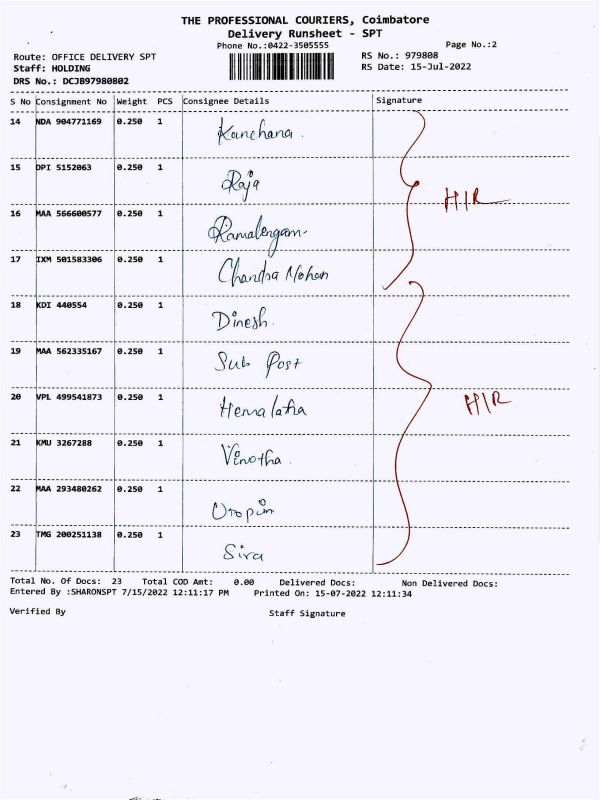 THE PROFESSIONAL COURIERS, Coimbatore
Delivery Runsheet - SPT
Phone No.:0422-3505555
Page No.:2
Route: OFFICE DELIVERY SPT
RS No.: 979808
Staff: HOLDING
RS Date: 15-Jul-2022
DRS No.: DCJB97980802
S No Consignment No Weight PCS Consignee Details Signature
14 NDA 904771169 0.250 1 Kanchana.
15 DPI 5152063 0.250 1 Raja
16 MAA 566600577 0.250 1 Ramalengam
H/R
17 IXM 501583306 0.250 1 Chandra Mohan
18 KDI 440554 0.250 1 Dinesh.
19 MAA 562335167 0.250 1 Sub Post
20 VPL 499541873 0.250 1 Hemalatha
H/R
21 KMU 3267288 0.250 1 Vinotha.
22 MAA 293480262 0.250 1
23 TMG 200251138 0.250 1 Siva
Total No. Of Docs: 23 Total COD Amt: 0.00 Delivered Docs: Non Delivered Docs:
Entered By :SHARONSPT 7/15/2022 12:11:17 PM Printed On: 15-07-2022 12:11:34
Verified By Staff Signature